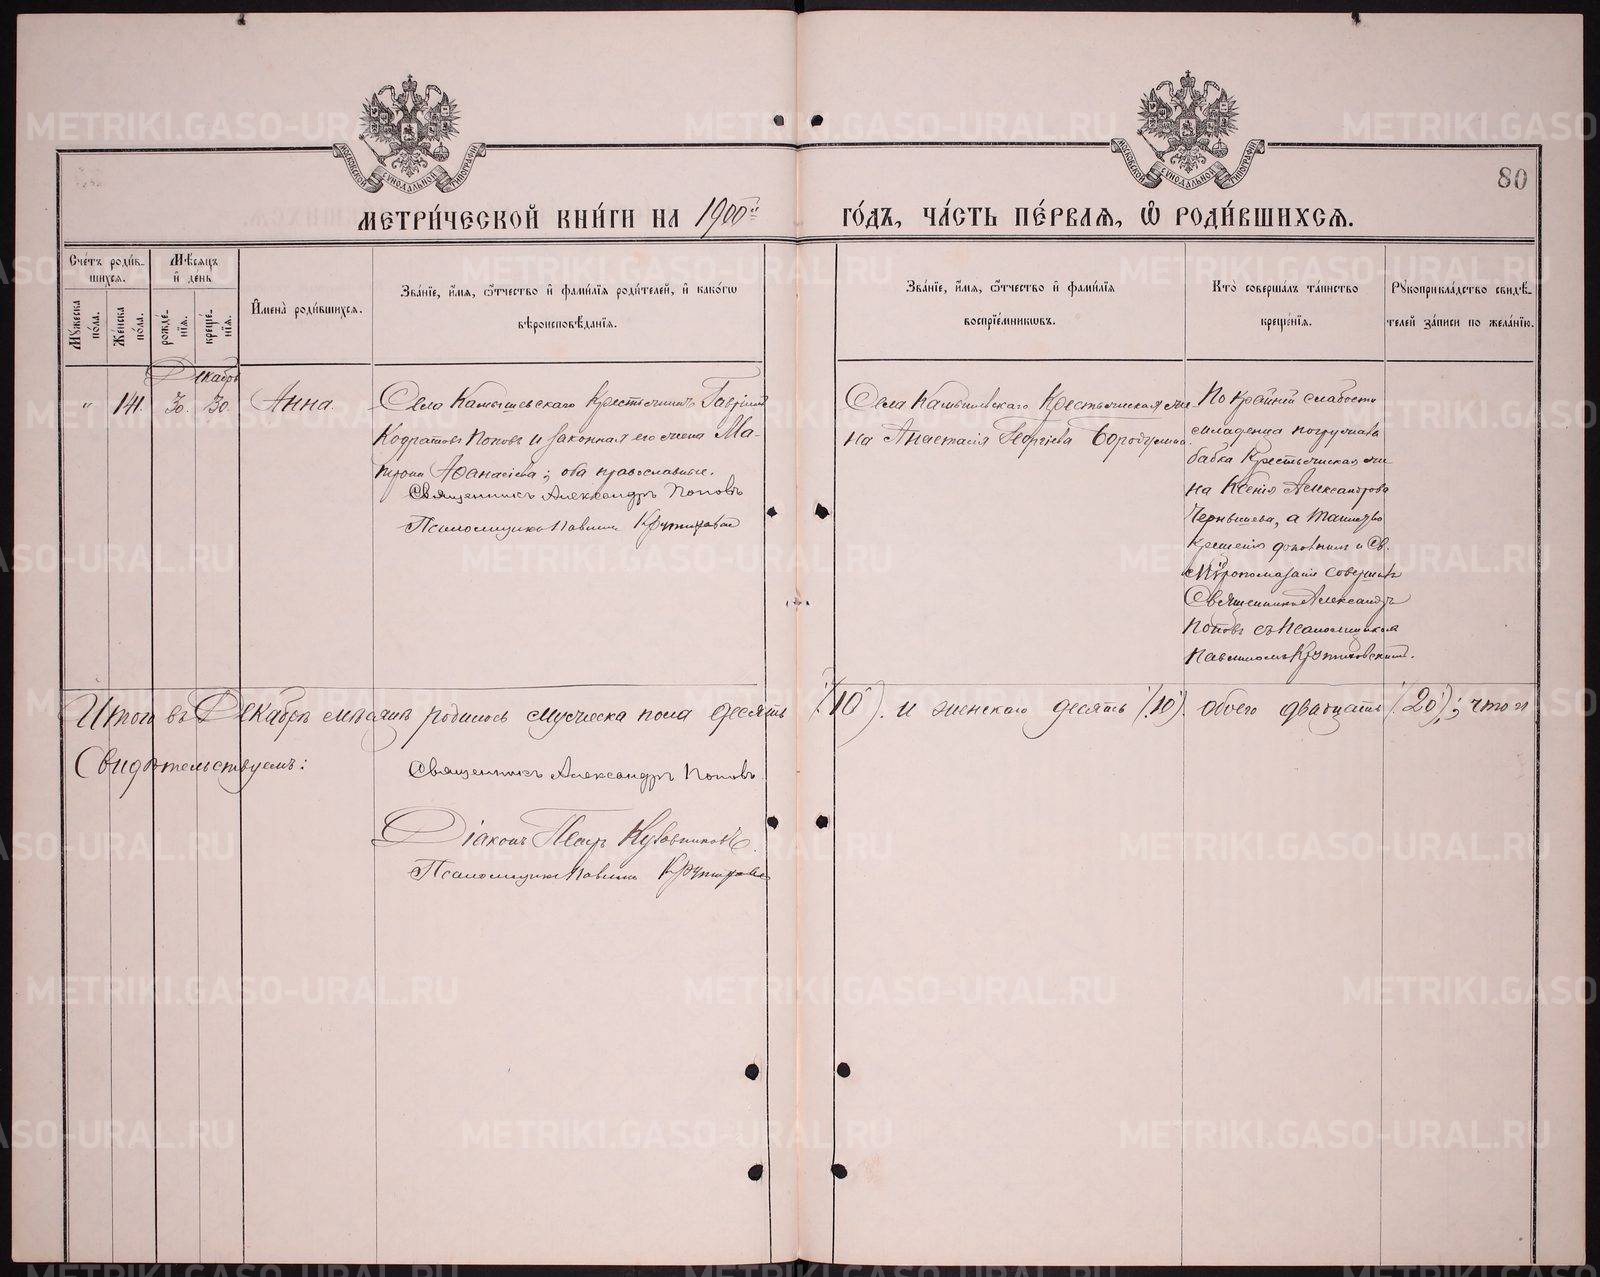 МОСКОВСКОЙ СѴНОДАЛЬНОЙ ТИПОГРАФІИ
МОСКОВСКОЙ СѴНОДАЛЬНОЙ ТИПОГРАФІИ
80
МЕТРИ́ЧЕСКОЙ КНИ́ГИ НА 1900й ГО́ДЪ, ЧА́СТЬ ПЕ́РВАЯ, Ѡ РОДИ́ВШИХСЯ.
Счетъ родившихся.
Мужеска пола.
Женска пола.
Мѣсяцъ и день
рожденія.
крещенія.
Имена родившихся.
Званіе, имя, отчество и фамилія родителей, и какогѡ вѣроисповѣданія.
Званіе, имя, отчество и фамилія воспріемниковъ.
Кто совершалъ таинство крещенія.
Рукоприкладство свидѣтелей записи по желанію.
Декабрь
" 141. 30. 30. Анна.
Села Камышевскаго Крестьянинъ Гавріилъ
Кодратовъ Поповъ и законная его жена Ма-
трона Аѳанасіева; оба православные.
Священникъ Александръ Поповъ
Псаломщикъ Павлинъ
Села Камышевскаго Крестьянская же-
на Анастасія Георгіева Бородулина
По крайней слабости
младенца погружала
бабка Крестьянская же-
на Ксенія Александрова
Чернышева, а таинство
Крещенія дополнилъ и Св.
Мѵропомазаніе совершилъ
Священникъ Александръ
Поповъ съ Псаломщикомъ
Павлиномъ
Итого въ Декабрѣ мѣсяцѣ родилось мужеска пола десять (10) и женскаго десять (10). обоего двадцать (20); что и
Свидѣтельствуемъ:
Священникъ Александръ Поповъ
Діаконъ Петръ
Псаломщикъ Павлинъ
METRIKI.GASO-URAL.RU